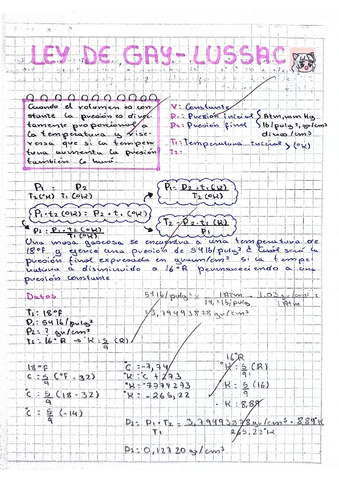 LEY DE GAY-LUSSAC
Cuando el volumen es con
stante la presión es direc
tamente proporcional a
la temperatura y vice-
versa que si la tempe-
ratura aumenta la presión
también lo hará.
V= Constante
P1= Presión inicial
P2= Presión final
Atm, mm Hg
lb/pulg², gr/cm²
dinas/cm²
T1= Temperatura inicial
T2=
(°K)
P1 = P2
T2(°K) T1(°K)
P1 = P2 · t1 (°K)
P1 · t2 (°K) = P2 · t1 (°K)
P2 = P1 · t2 (°K)
T1 (°K)
T2 = P2 · t1 (°K)
P1
Una masa gaseosa se encuentra a una temperatura de
18°F, y ejerce una presión de 54 lb/pulg² ¿Cuál será la
presión final expresada en gramo/cm² si la tempe-
ratura a disminuido a 16°R permaneciendo a una
presión constante
Datos
54 lb/pulg² 1 Atm 1.03 gr/cm²
14.7 lb/pulg² 1 Atm
T1= 18°F
=3,79493878 gr/cm²
P1= 54 lb/pulg²
P2= ? gr/cm²
T2= 16°R → °K = 5/9 (R)
18°F
°C = 5/9 (°F - 32)
°C = 5/9 (18 - 32)
°C = 5/9 (-14)
°C = -7,74
°K = °C + 273
°K = -7,74+273
°K = -265,22
16°R
°K = 5/9 (R)
°K = 5/9 (16)
°K = 8,89
P2 = P1 · T2 = 3,79493878 gr/cm² · 8.89°K
T1 265,22°K
P2 = 0,12720 gr/cm²